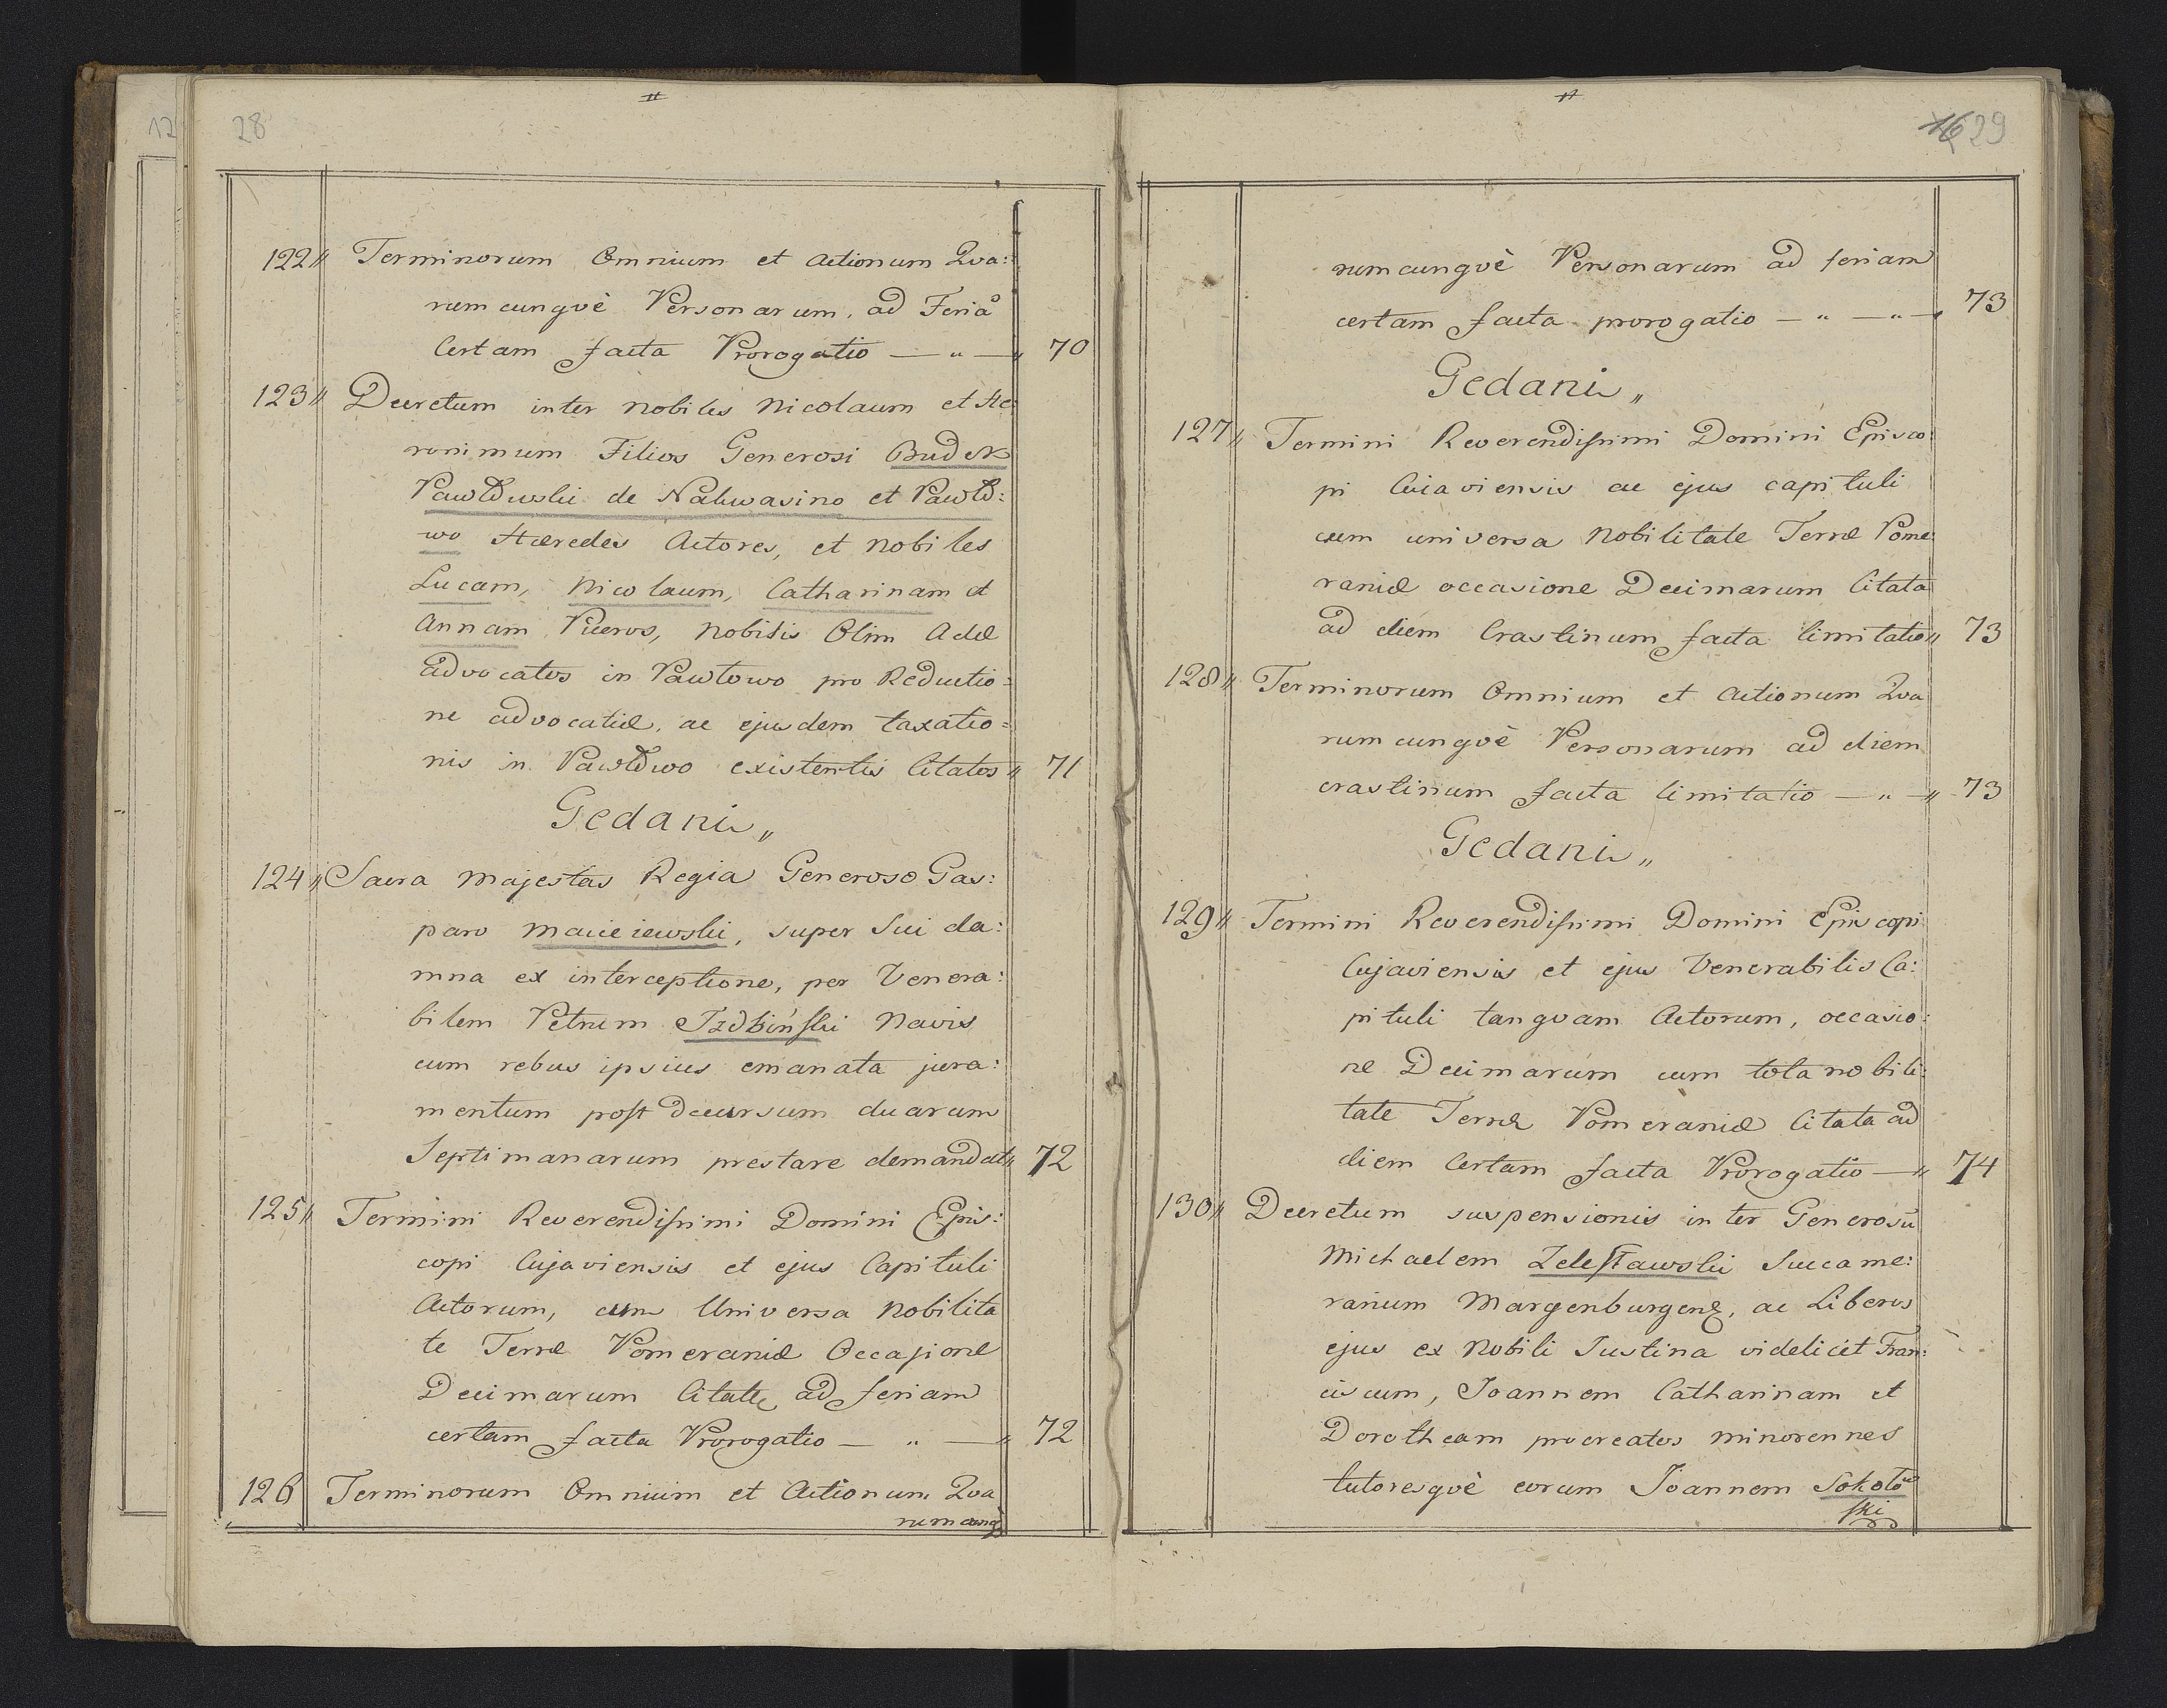 28
122〃 Terminorum Omnium et Actionum Qva:
rum cunqvè Personarum, ad Feriã
Certam facta Prorogatio — „ — „ 70
123〃 Decretum inter Nobiles Nicolaum et He
ronimum Filios Generosi Budek
Pawłowski de Nakwasino et Pawło:
wo Hæredes Actores, et Nobiles
Lucam, Nicolaum, Catharinam et
Annam Pueros, Nobilis Olim Adæ
Advocatos in Pawłowo pro Reductio=
ne advocatiæ, ac ejusdem taxatio=
nis in Pawłowo existentis Citatos〃 71
Gedani„
124〃 Sacra Majestas Regia Generoso Gas:
paro Macieiewski, super Sui da:
mna ex interceptione, per Venera:
bilem Petrum Navis
cum rebus ipsius emanata jura:
mentum post Decursum duarum
Septimanarum prestare demandat〃 72
125〃 Termini Reverendissimi Domini Epis:
copi Cujaviensis et ejus Capituli
Actorum, cum Universa Nobilita
te Terræ Pomeraniæ Occasione
Decimarum Citatæ ad feriam
certam facta Prorogatio — „ — „ 72
126 Terminorum Omnium et Actionum Qva
rumcunq
29
rumcunqvè Personarum ad feriam
certam facta prorogatio — „ — „ — 73
Gedani„
127〃 Termini Reverendissimi Domini Episco:
pi Cuiaviensis ac ejus capituli
cum universa Nobilitate Terræ Pome:
raniæ occasione Decimarum Citata
ad diem Crastinum facta limitatio〃 73
128〃 Terminorum Omnium et Actionum Qva
rum cunqvè Personarum ad diem
crastinum facta limitatio — „ — 〃 73
Gedani„
129〃 Termini Reverendissimi Domini Episcopi
Cujaviensis et ejus Venerabilis Ca:
pituli tanqvam Actorum, occasio:
ne Decimarum cum tota nobili:
tate Terræ Pomeraniæ Citata ad
diem Certam facta Prorogatio — 〃 74
130〃 Decretum suspensionis inter Generosũ
Michaelem Zelesławski Succame:
rarium Margenburgens, ac Liberos
ejus ex Nobili Justina videlicet Fran:
ciscum, Joannem Catharinam et
Dorotheam procreatos minorennes
tutoresqvè eorum Joannem Sokoło
ski